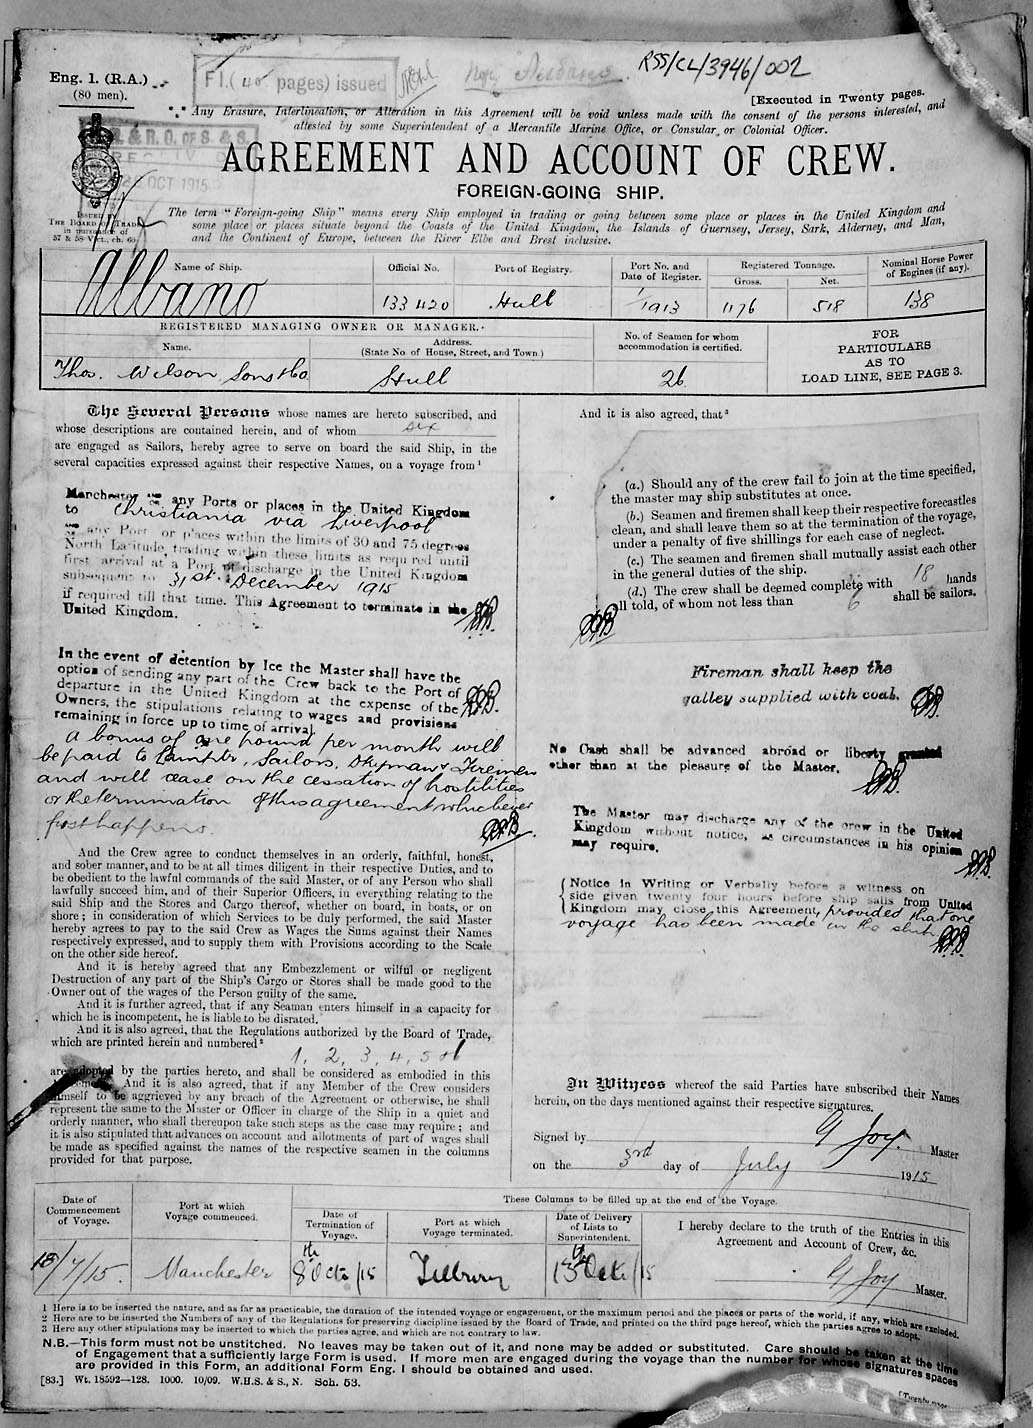 RSS/CL/3946/002
Eng. 1. (R.A.)
(80 men).
F1.( 40 pages) issued
[Executed in Twenty pages.
Any Erasure, Interlineation, or Alteration in this Agreement will be void unless made with the consent of the persons interested, and
attested by some Superintendent of a Mercantile Marine Office, or Consular or Colonial Officer.
& R.O. OF S. & S.
OCT 1915
AGREEMENT AND ACCOUNT OF CREW.
FOREIGN-GOING SHIP.
ISSUED BY
THE BOARD OF TRADE
in pursuance of
57 & 58 Vict., ch. 60
The term "Foreign-going Ship" means every Ship employed in trading or going between some place or places in the United Kingdom and
some place or places situate beyond the Coasts of the United Kingdom, the Islands of Guernsey, Jersey, Sark, Alderney, and Man,
and the Continent of Europe, between the River Elbe and Brest inclusive.
Name of Ship. Official No. Port of Registry. Port No. and Date of Register. Registered Tonnage. Gross. Net. Nominal Horse Power of Engines (if any).
Albano 133420 Hull 1/1913 1176 518 138
REGISTERED MANAGING OWNER OR MANAGER.
Name. Address. (State No. of House, Street, and Town.) No. of Seamen for whom accommodation is certified.
Thos. Wilson Sons & Co Hull 26
FOR
PARTICULARS
AS TO
LOAD LINE, SEE PAGE 3.
The Several Persons whose names are hereto subscribed, and
whose descriptions are contained herein, and of whom six
are engaged as Sailors, hereby agree to serve on board the said Ship, in the
several capacities expressed against their respective Names, on a voyage from¹
Manchester AND any Ports or places in the United Kingdom
to Christiania via Liverpool
AND any Port or places within the limits of 30 and 75 degrees
North Latitude, trading within these limits as required until
first arrival at a Port of discharge in the United Kingdom
subsequent to 31st December 1915
if required till that time. This Agreement to terminate in the
United Kingdom.
In the event of detention by Ice the Master shall have the
option of sending any part of the Crew back to the Port of
departure in the United Kingdom at the expense of the
Owners, the stipulations relating to wages and provisions
remaining in force up to time of arrival
A bonus of one pound per month will
be paid to Lamptr, Sailors, Dkyman & Firemen
and will cease on the cessation of hostilities
or the termination of this agreement whichever
first happens.
And the Crew agree to conduct themselves in an orderly, faithful, honest,
and sober manner, and to be at all times diligent in their respective Duties, and to
be obedient to the lawful commands of the said Master, or of any Person who shall
lawfully succeed him, and of their Superior Officers, in everything relating to the
said Ship and the Stores and Cargo thereof, whether on board, in boats, or on
shore; in consideration of which Services to be duly performed, the said Master
hereby agrees to pay to the said Crew as Wages the Sums against their Names
respectively expressed, and to supply them with Provisions according to the Scale
on the other side hereof.
And it is hereby agreed that any Embezzlement or wilful or negligent
Destruction of any part of the Ship's Cargo or Stores shall be made good to the
Owner out of the wages of the Person guilty of the same.
And it is further agreed, that if any Seaman enters himself in a capacity for
which he is incompetent, he is liable to be disrated.
And it is also agreed, that the Regulations authorized by the Board of Trade,
which are printed herein and numbered²
1, 2, 3, 4, 5 & 6
are adopted by the parties hereto, and shall be considered as embodied in this
And it is also agreed, that if any Member of the Crew considers
himself to be aggrieved by any breach of the Agreement or otherwise, he shall
represent the same to the Master or Officer in charge of the Ship in a quiet and
orderly manner, who shall thereupon take such steps as the case may require; and
it is also stipulated that advances on account and allotments of part of wages shall
be made as specified against the names of the respective seamen in the columns
provided for that purpose.
And it is also agreed, that³
(a.) Should any of the crew fail to join at the time specified,
the master may ship substitutes at once.
(b.) Seamen and firemen shall keep their respective forecastles
clean, and shall leave them so at the termination of the voyage,
under a penalty of five shillings for each case of neglect.
(c.) The seamen and firemen shall mutually assist each other
in the general duties of the ship.
(d.) The crew shall be deemed complete with 18 hands
all told, of whom not less than 6 shall be sailors.
Fireman shall keep the
galley supplied with coal.
No Cash shall be advanced abroad or liberty granted
other than at the pleasure of the Master.
The Master may discharge any of the crew in the United
Kingdom without notice, as circumstances in his opinion
may require.
Notice in Writing or Verbally before a witness on
side given twenty four hours before ship sails from United
Kingdom may close this Agreement, provided that one
voyage has been made in the ship
In Witness whereof the said Parties have subscribed their Names
herein, on the days mentioned against their respective signatures.
Signed by G Joy. Master
on the 3rd day of July 1915
Date of Commencement of Voyage. Port at which Voyage commenced. These Columns to be filled up at the end of the Voyage.
Date of Termination of Voyage. Port at which Voyage terminated. Date of Delivery of Lists to Superintendent. I hereby declare to the truth of the Entries in this Agreement and Account of Crew, &c.
13/7/15. Manchester 8th Oct/15 Tilbury 13th Oct/15 G Joy Master.
1 Here is to be inserted the nature, and as far as practicable, the duration of the intended voyage or engagement, or the maximum period and the places or parts of the world, if any, which are excluded.
2 Here are to be inserted the Numbers of any of the Regulations for preserving discipline issued by the Board of Trade, and printed on the third page hereof, which the parties agree to adopt.
3 Here any other stipulations may be inserted to which the parties agree, and which are not contrary to law.
N.B.—This form must not be unstitched. No leaves may be taken out of it, and none may be added or substituted. Care should be taken at the time
of Engagement that a sufficiently large Form is used. If more men are engaged during the voyage than the number for whose signatures spaces
are provided in this Form, an additional Form Eng. 1 should be obtained and used.
[83.] Wt. 18592—128. 1000. 10/09. W.H.S. & S., N. Sch. 53.